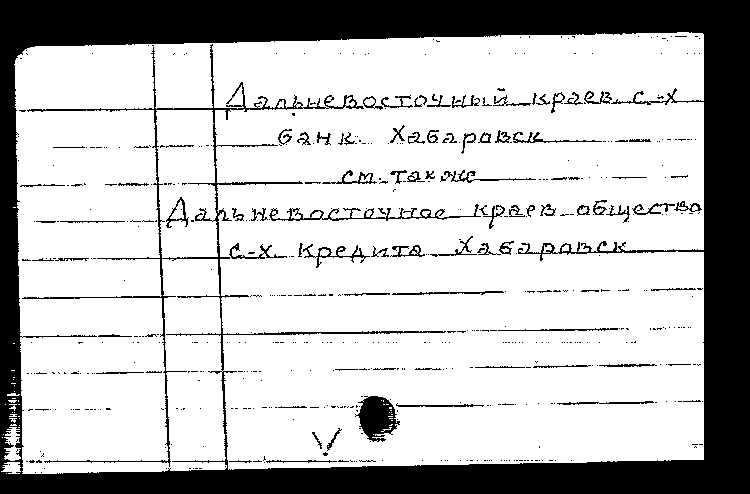 Дальневосточный краев. с.-х
банк. Хабаровск
см. также
Дальневосточное краев. общество
с.-х. кредита Хабаровск